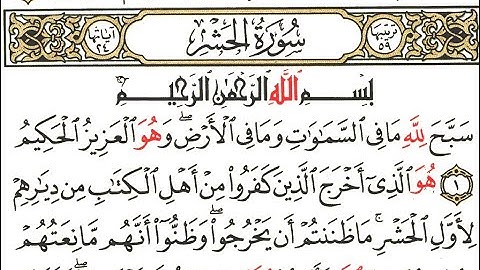 ترتيبها ٥٩ سُورَةُ الحَشْرِ آياتها ٢٤
بِسْمِ اللَّهِ الرَّحْمَٰنِ الرَّحِيمِ
سَبَّحَ لِلَّهِ مَا فِى السَّمَٰوَٰتِ وَمَا فِى الْأَرْضِ ۖ وَهُوَ الْعَزِيزُ الْحَكِيمُ
١ هُوَ الَّذِىٓ أَخْرَجَ الَّذِينَ كَفَرُوا۟ مِنْ أَهْلِ الْكِتَٰبِ مِن دِيَٰرِهِمْ
لِأَوَّلِ الْحَشْرِ ۚ مَا ظَنَنتُمْ أَن يَخْرُجُوا۟ ۖ وَظَنُّوٓا۟ أَنَّهُم مَّانِعَتُهُمْ